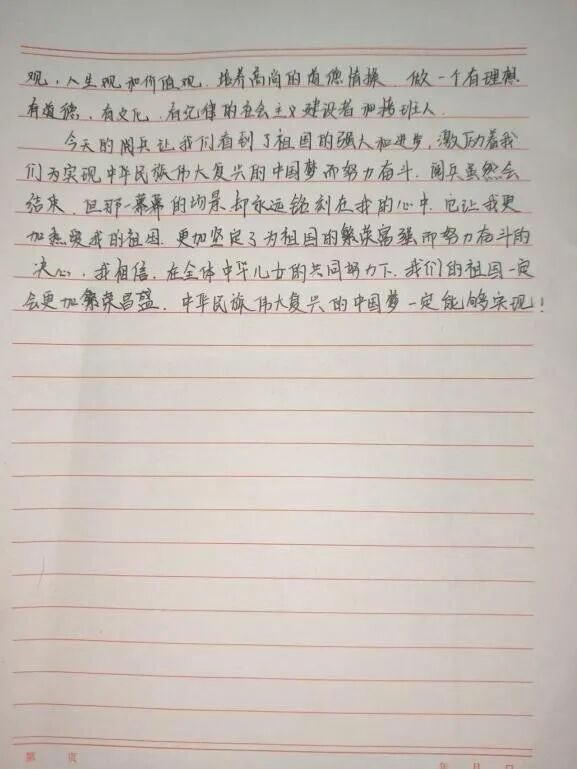 观，人生观和价值观，培养高尚的道德情操，做一个有理想
有道德，有文化，有纪律的社会主义建设者和接班人。
今天的阅兵让我们看到了祖国的强大和进步，激励着我
们为实现中华民族伟大复兴的中国梦而努力奋斗。阅兵虽然会
结束，但那一幕幕的场景却永远铭刻在我的心中，它让我更
加热爱我的祖国，更加坚定了为祖国的繁荣富强而努力奋斗的
决心，我相信，在全体中华儿女的共同努力下，我们的祖国一定
会更加繁荣昌盛，中华民族伟大复兴的中国梦一定能够实现！
第 页
年 月 日